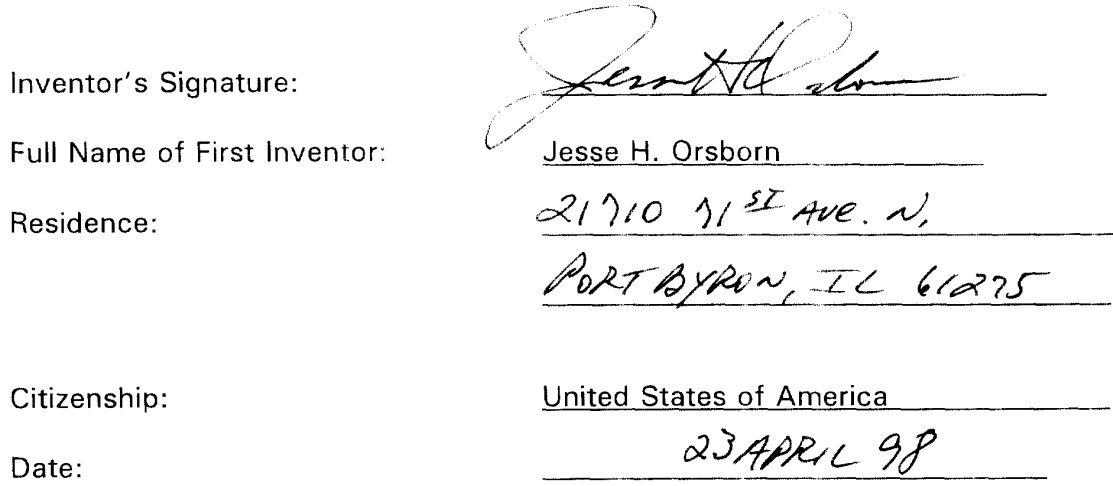 Inventor's Signature: Jesse H Orsborn
Full Name of First Inventor: Jesse H. Orsborn
Residence: 21710 71ST AVE. N,
PORT BYRON, IL 61275
Citizenship: United States of America
Date: 23 APRIL 98